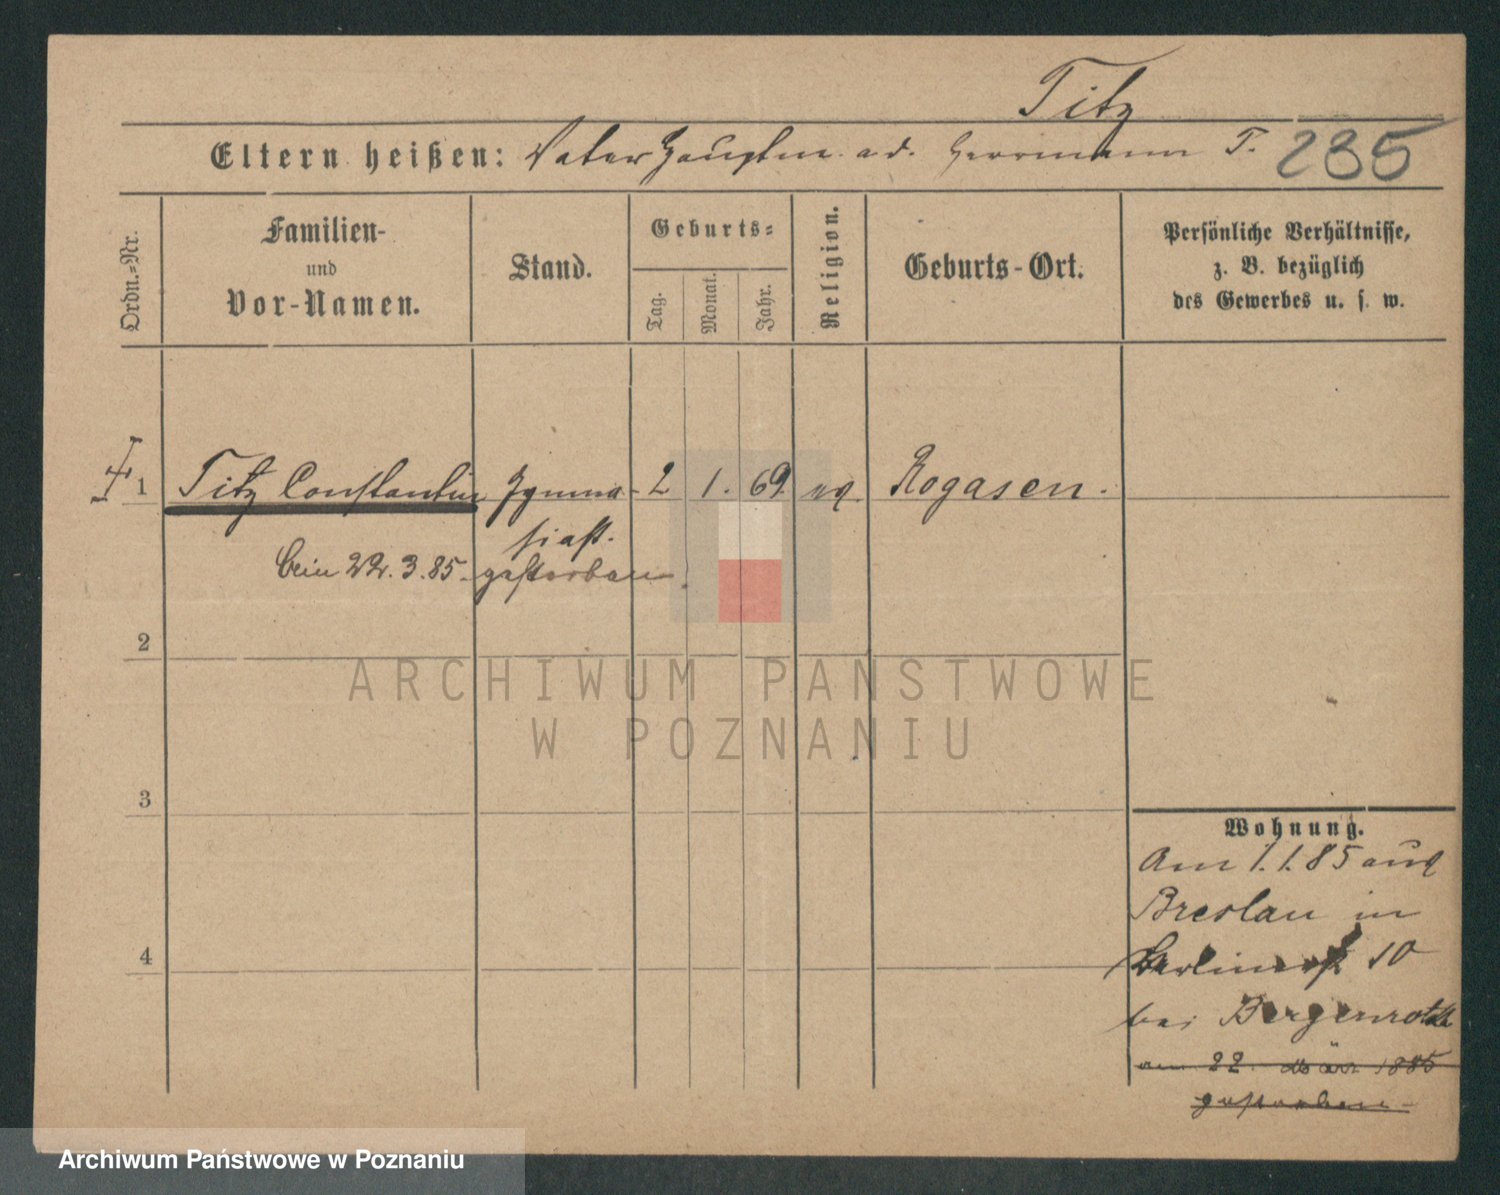 Titz
Eltern heißen: Vater Hauptm. a.d. Herrmann T. 235
Ordn.-Nr.
Familien-
und
Vor-Namen.
Stand.
Geburts-
Tag.
Monat.
Jahr.
Religion.
Geburts-Ort.
Persönliche Verhältnisse,
z. B. bezüglich
des Gewerbes u. s. w.
1 Titz Constantin Gymna- 2 1. 69 ev. Rogasen.
siast.
22.3.85. gestorben.
2
ARCHIWUM PAŃSTWOWE
W POZNANIU
3
Wohnung.
Am 1.1.85 aus
Breslau in
Berlinerst 10
bei Bergenroth
4
am 22. März 1885
gestorben
Archiwum Państwowe w Poznaniu